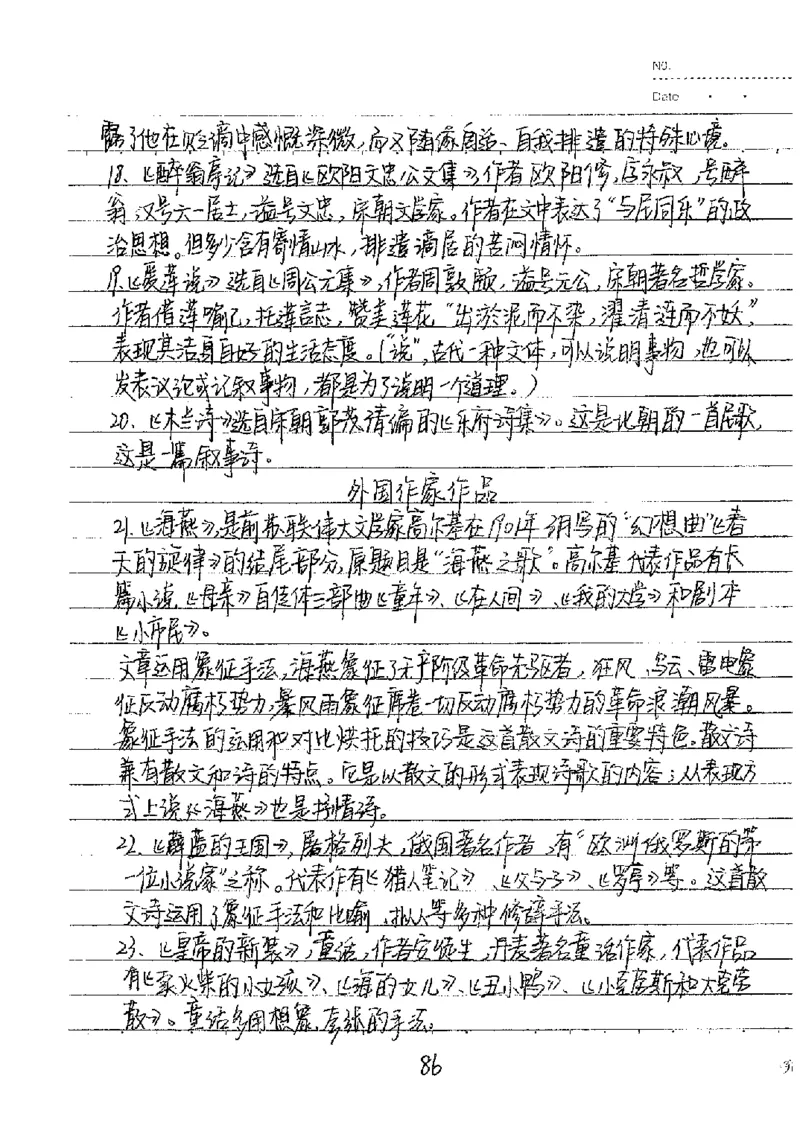 No.
Date
露了他在贬谪中感慨深微,而又随缘自适、自我排遣的特殊心境。
18、《醉翁亭记》选自《欧阳文忠公文集》,作者欧阳修,字永叔,号醉
翁,又号六一居士,谥号文忠,宋朝文学家。作者在文中表达了“与民同乐”的政
治思想。但多少含有寄情山水,排遣谪居的苦闷情怀。
19.《爱莲说》选自《周元公集》,作者周敦颐,谥号元公,宋朝著名哲学家。
作者借莲喻己,托莲言志,赞美莲花“出淤泥而不染,濯清涟而不妖”,
表现其洁身自好的生活态度。(“说”,古代一种文体,可以说明事物,也可以
发表议论或记叙事物,都是为了说明一个道理。)
20、《木兰诗》选自宋朝郭茂倩编的《乐府诗集》。这是北朝的一首民歌,
这是一篇叙事诗。
外国作家作品
21.《海燕》,是前苏联伟大文学家高尔基在1901年3月写的“幻想曲”《春
天的旋律》的结尾部分,原题目是“海燕之歌”。高尔基代表作品有长
篇小说《母亲》自传体三部曲《童年》、《在人间》、《我的大学》和剧本
《小市民》。
文章运用象征手法,海燕象征了无产阶级革命先驱者,狂风、乌云、雷电象
征反动腐朽势力,暴风雨象征席卷一切反动腐朽势力的革命浪潮风暴。
象征手法的运用和对比烘托的技巧是这首散文诗的重要特色。散文诗
兼有散文和诗的特点。它是以散文的形式表现诗歌的内容;从表现方
式上说《海燕》也是抒情诗。
22、《蔚蓝的王国》,屠格列夫,俄国著名作者,有“欧洲俄罗斯的第
一位小说家”之称。代表作有《猎人笔记》、《父与子》、《罗亭》等。这首散
文诗运用了象征手法和比喻、拟人等多种修辞手法。
23、《皇帝的新装》,童话,作者安徒生,丹麦著名童话作家,代表作品
有《卖火柴的小女孩》、《海的女儿》、《丑小鸭》、《小克劳斯和大克劳
散》。童话多用想象,夸张的手法。
86